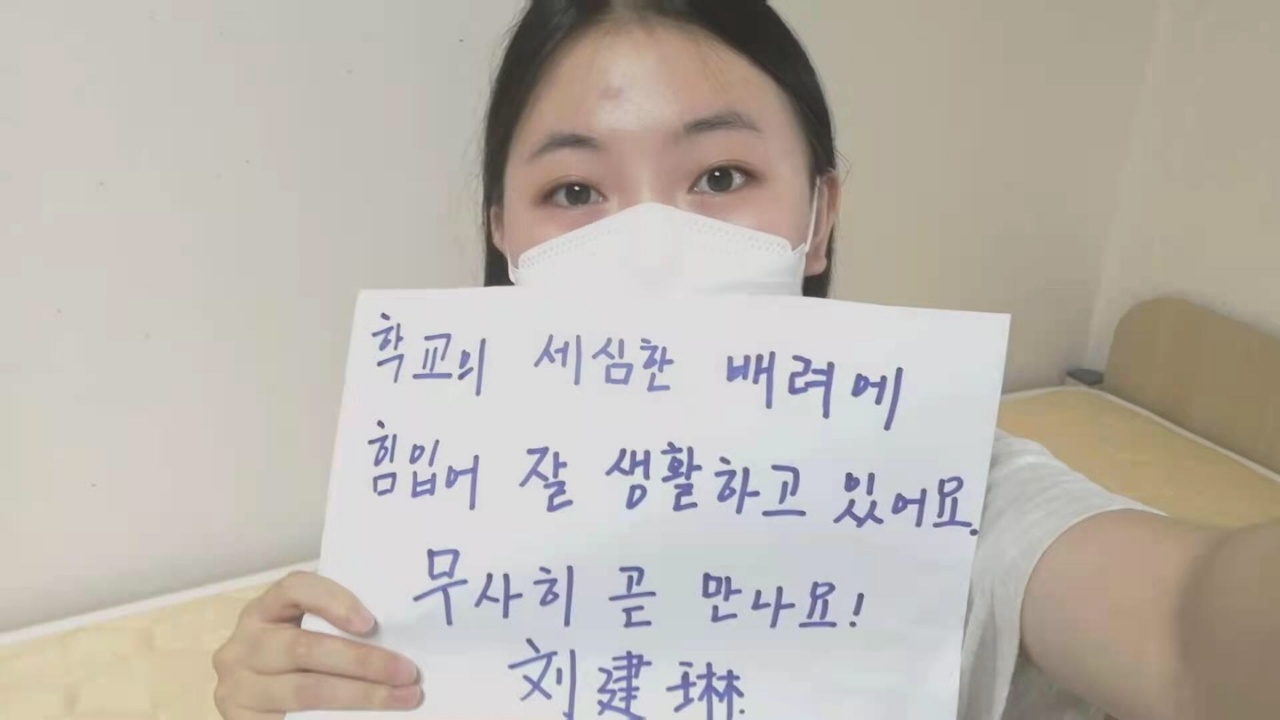 학교의 세심한 배려에
힘입어 잘 생활하고 있어요.
무사히 곧 만나요!
刘建琳.